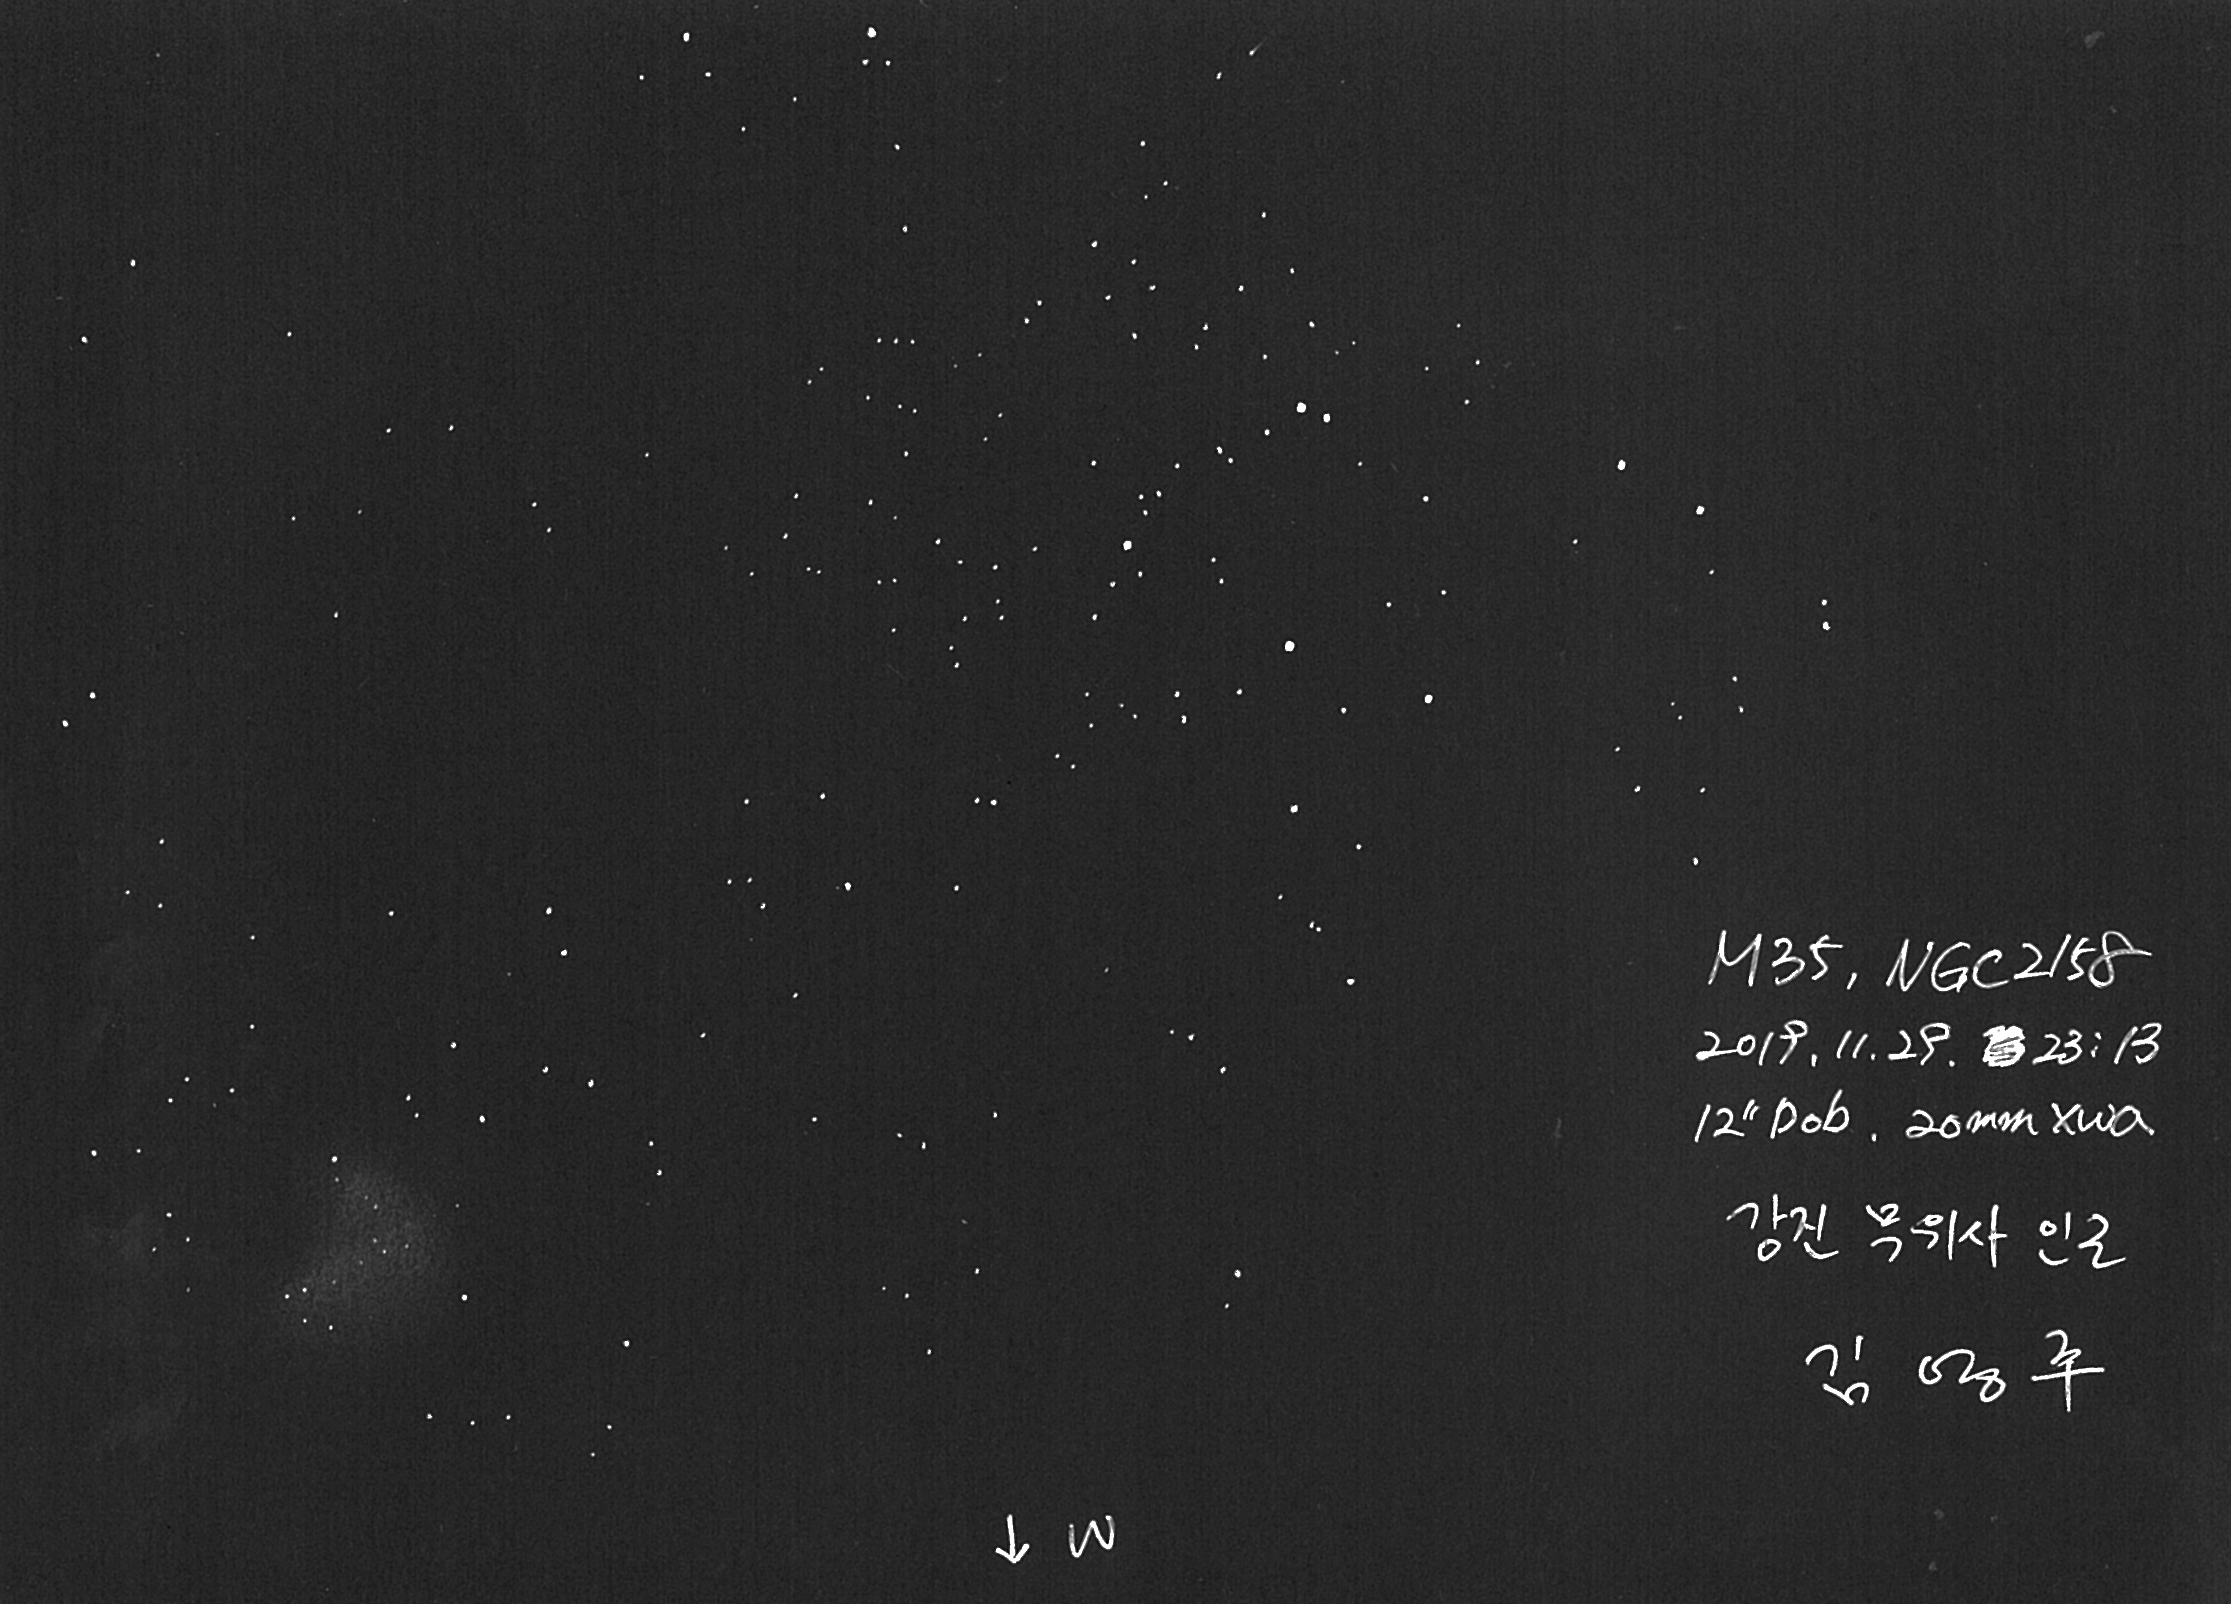 M35, NGC2158
2019. 11. 29. 23:13
12" Dob. 20mm XWA
강진 무위사 인근
김영주
↓ W